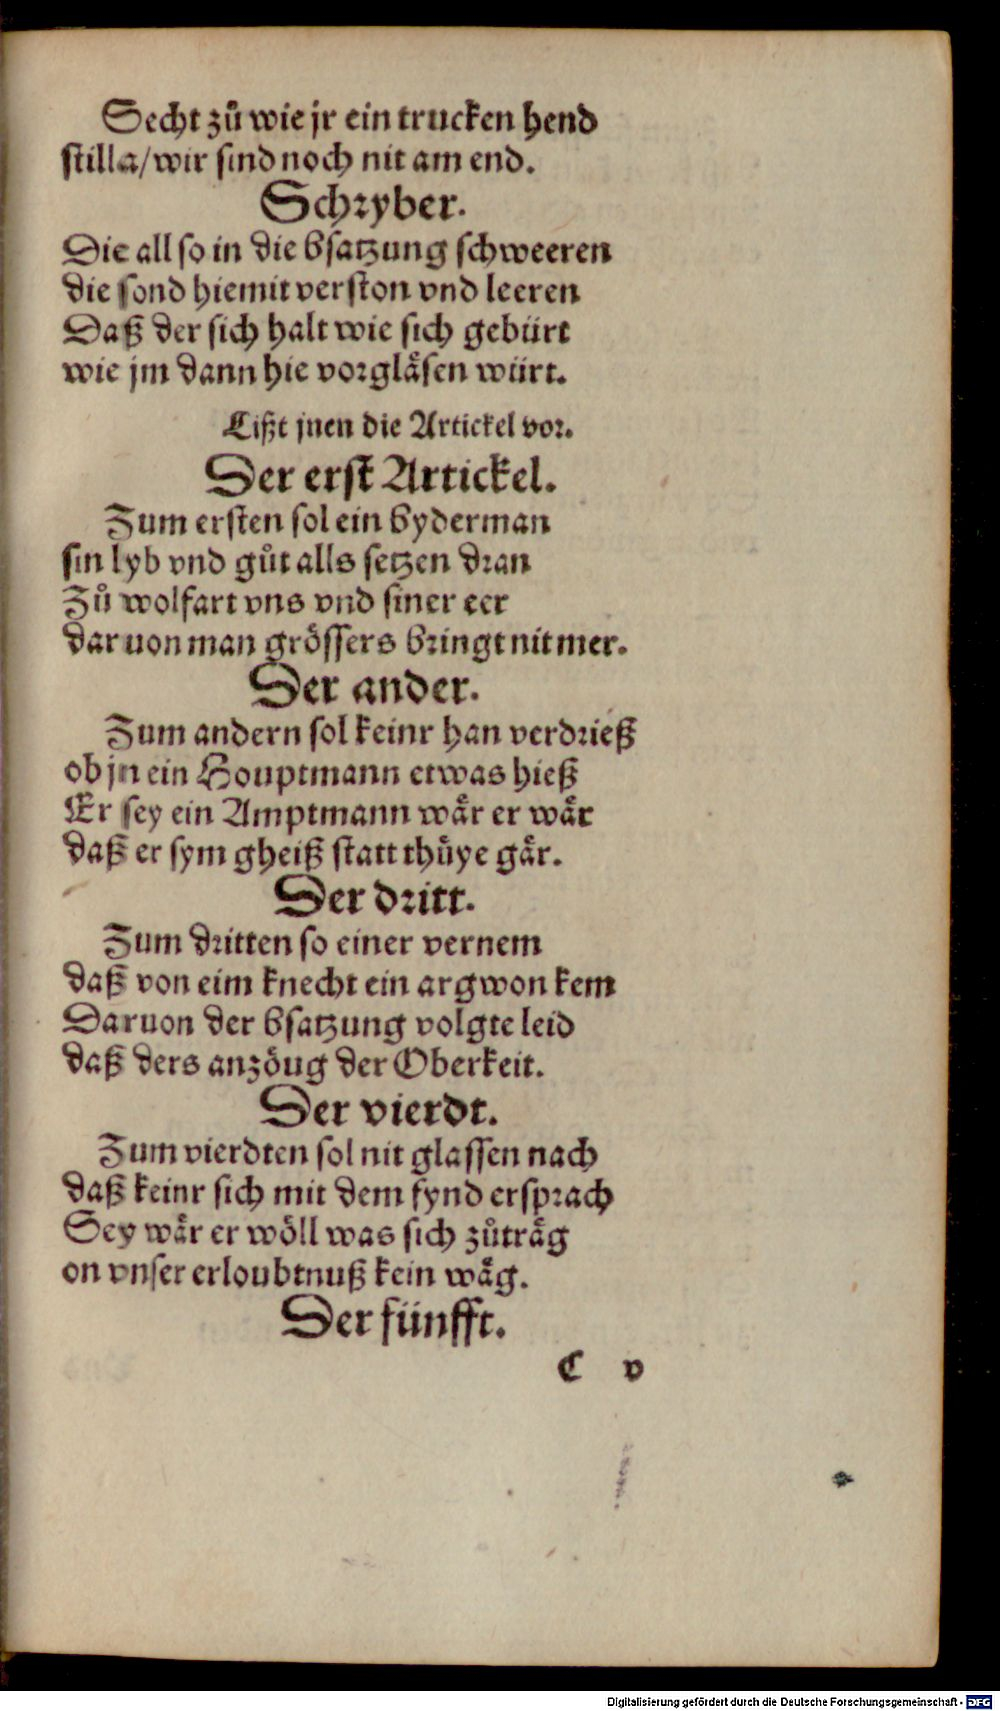 Secht zů wie jr ein trucken hend
stilla/ wir sind noch nit am end.
Schryber.
Die all so in die bsatzung schweeren
die sond hiemit verston vnd leeren
Daß der sich halt wie sich gebürt
wie jm dann hie vorglåsen würt.
Lißt jnen die Artickel vor.
Der erst Artickel.
Zum ersten sol ein byderman
sin lyb vnd gůt alls setzen dran
Zů wolfart vns vnd siner eer
dar uon man grössers bringt nit mer.
Der ander.
Zum andern sol keinr han verdrieß
ob jn ein Houptmann etwas hieß
Er sey ein Amptmann wår er wår
daß er sym gheiß statt thüye går.
Der dritt.
Zum dritten so einer vernem
daß von eim knecht ein argwon kem
Daruon der bsatzung volgte leid
daß ders anzöug der Oberkeit.
Der vierdt.
Zum vierdten sol nit glassen nach
daß keinr sich mit dem fynd ersprach
Sey wår er wöll was sich zůtråg
on vnser erloubtnuß kein wåg.
Der fünfft.
C v
Digitalisierung gefördert durch die Deutsche Forschungsgemeinschaft - DFG